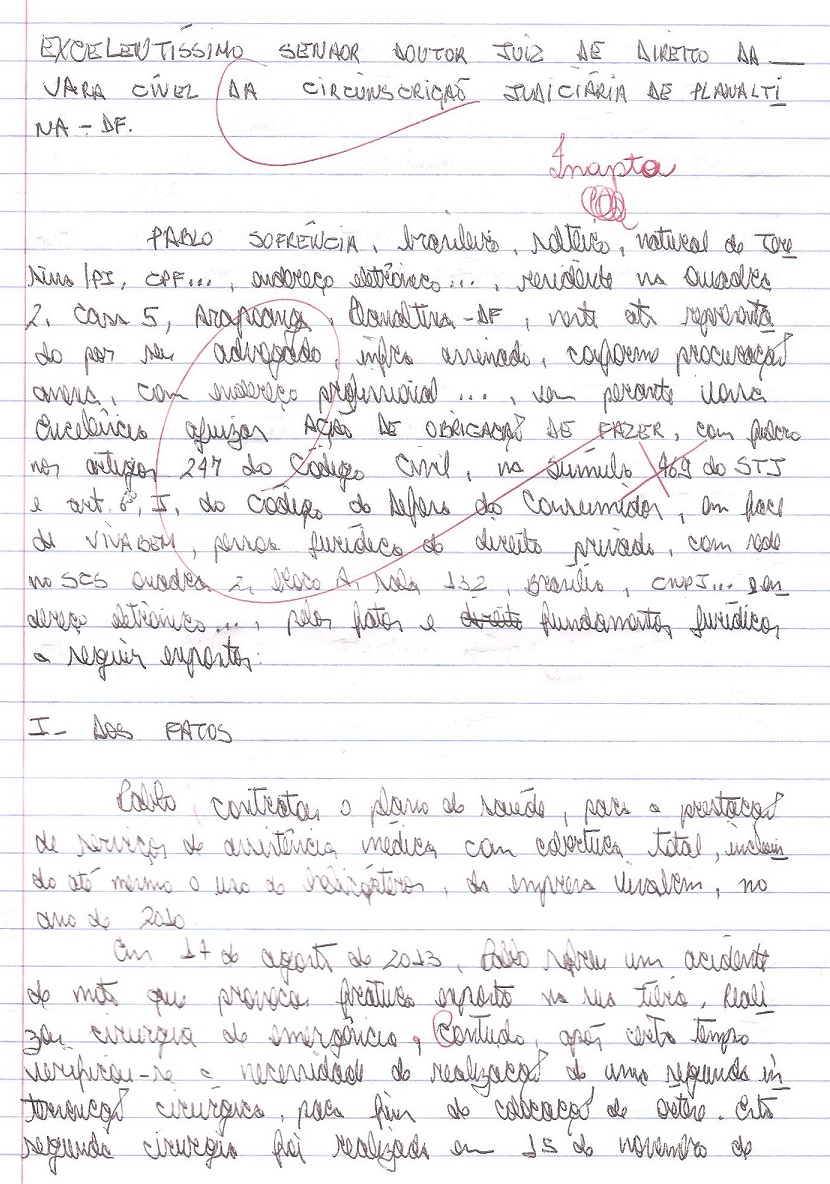 EXCELENTÍSSIMO SENHOR DOUTOR JUIZ DE DIREITO DA ___
VARA CÍVEL DA CIRCUNSCRIÇÃO JUDICIÁRIA DE PLANALTI
NA - DF.
Inapto
PABLO SOFRÊNCIA, brasileiro, solteiro, natural de Tere
sina/PI, CPF..., endereço eletrônico..., residente na Quadra
2, casa 5, Arapoanga, Planaltina-DF, neste ato representa
do por seu advogado, infra assinado, conforme procuração
anexa, com endereço profissional ..., vem perante Vossa
Excelência ajuizar AÇÃO DE OBRIGAÇÃO DE FAZER, com fulcro
nos artigos 247 do Código Civil, na súmula 469 do STJ
e art. 6º, I, do Código de Defesa do Consumidor, em face
de VIVABEM, pessoa jurídica de direito privado, com sede
no SCS Quadra 2, bloco A, sala 132, Brasília, CNPJ... e en
dereço eletrônico..., pelos fatos e direito fundamentos jurídicos
a seguir expostos:
I- DOS FATOS
Pablo contratou o plano de saúde, para a prestação
de serviços de assistência médica com cobertura total, incluin
do até mesmo o uso de helicópteros, da empresa Vivabem, no
ano de 2010.
Em 17 de agosto de 2013, Pablo sofreu um acidente
de moto que provocou fratura exposta na sua tíbia. Reali
zou cirurgia de emergência, Contudo, após certo tempo
verificou-se a necessidade de realização de uma segunda in
tervenção cirúrgica, para fim de colocação de . Esta
segunda cirurgia foi realizada em 15 de novembro de